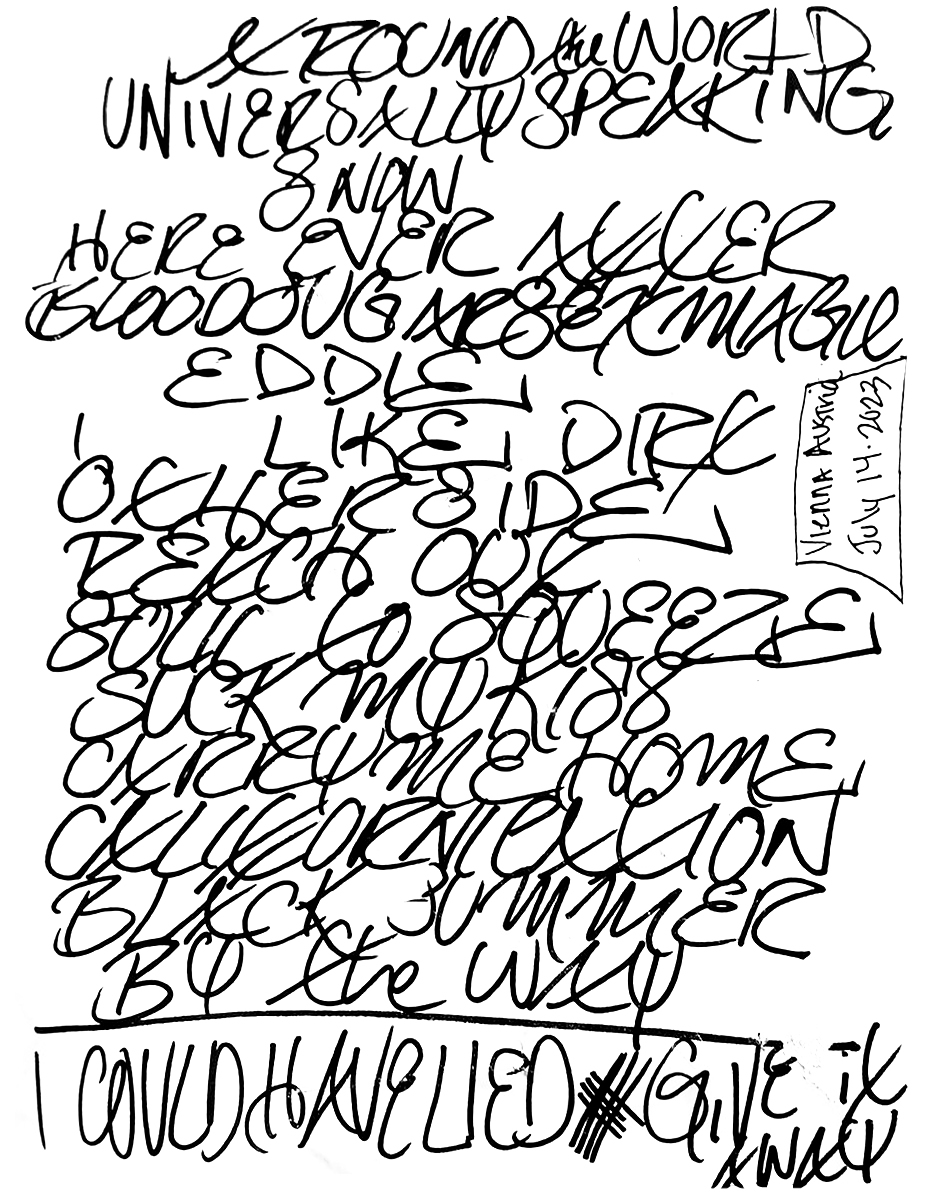 AROUND the WORLD
UNIVERSALLY SPEAKING
& NOW
HERE EVER AFTER
BLOOD SUGAR SEX MAGIK
EDDIE
I LIKE DIRT
OTHERSIDE
REACH OUT
SOUL TO SQUEEZE
SUCK MY KISS
CARRY ME HOME
CALIFORNICATION
BLACK SUMMER
BY the WAY
I COULD HAVE LIED # GIVE IT
AWAY
Vienna Austria
July 14.2023